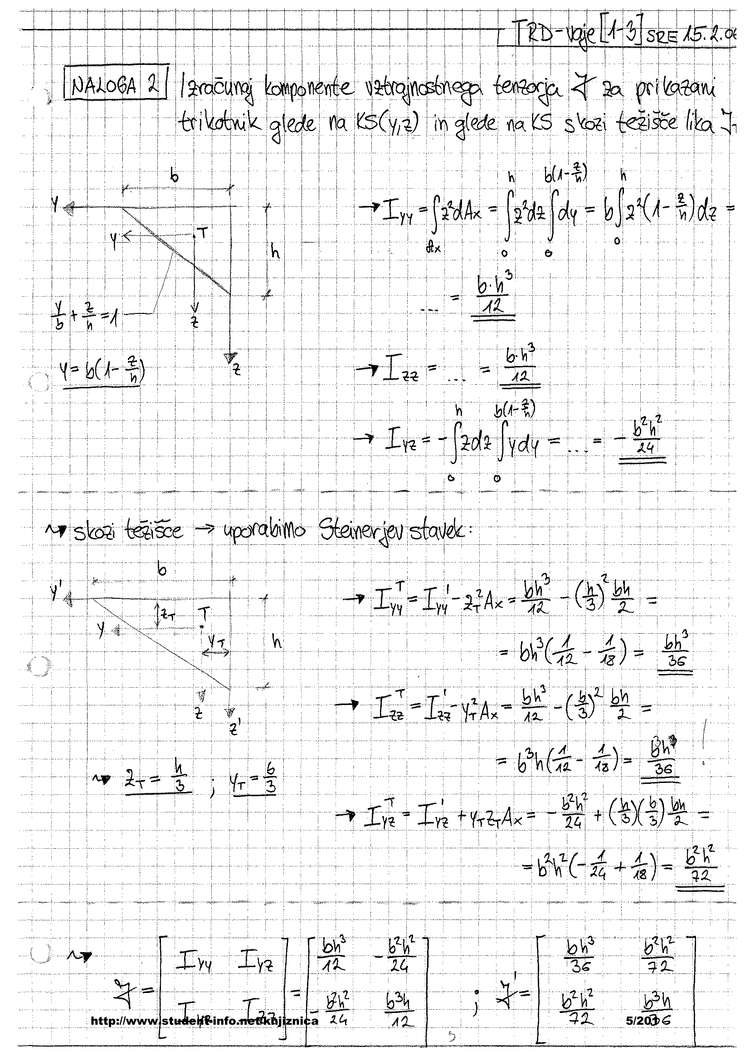 TRD-vaje [1-3] SRE 15.2.06
NALOGA 2 Izračunaj komponente vztrajnostnega tenzorja J za prikazani
trikotnik glede na KS(y,z) in glede na KS skozi težišče lika J
b
y
y T
h
y/b + z/h = 1
z
y = b(1 - z/h)
z
→ I_yy = ∫_Ax z² dAx = ∫_0^h z² dz ∫_0^{b(1-z/h)} dy = b ∫_0^h z² (1 - z/h) dz =
... = b·h³/12
→ I_zz = ... = b·h³/12
→ I_yz = - ∫_0^h z dz ∫_0^{b(1-z/h)} y dy = ... = - b²h²/24
⤳ skozi težišče → uporabimo Steinerjev stavek:
b
y'
z_T T
y
y_T
h
z
z'
⤳ z_T = h/3 ; y_T = b/3
→ I_yy^T = I_yy' - z_T² Ax = bh³/12 - (h/3)² bh/2 =
= bh³(1/12 - 1/18) = bh³/36
→ I_zz^T = I_zz' - y_T² Ax = bh³/12 - (b/3)² bh/2 =
= b³h(1/12 - 1/18) = bh³/36 !
→ I_yz^T = I_yz' + y_T z_T Ax = - b²h²/24 + (h/3)(b/3) bh/2 =
= b²h²(- 1/24 + 1/18) = b²h²/72
⤳ J = [I_yy I_yz; I_yz I_zz] = [bh³/12 - b²h²/24; - b²h²/24 b³h/12] ; J' = [bh³/36 b²h²/72; b²h²/72 b³h/36]
http://www.student-info.net/knjiznica 5/203